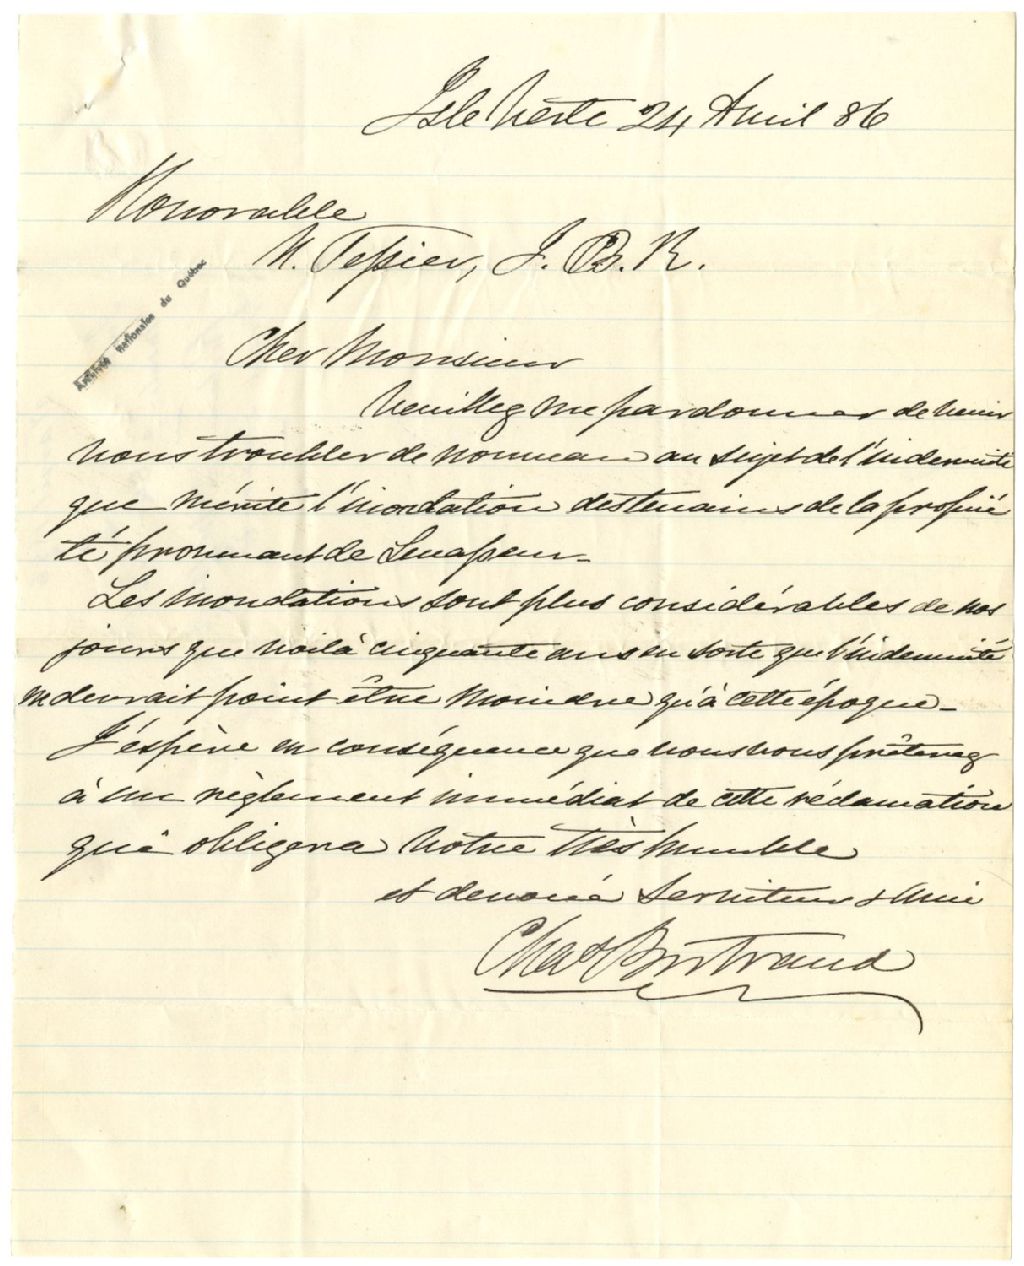 Isle Verte 24 Avril 86
Honorable
U. Tessier, J. B. R.
Archives nationales du Québec
Cher Monsieur
Veuillez me pardonner de venir
vous troubler de nouveau au sujet de l'indemnité
que mérite l'inondation des terrains de la proprié
té provenant de Levasseur_
Les inondations sont plus considérables de nos
jours que voilà cinquante ans en sorte que l'indemnité
ne devrait point être moindre qu'à cette époque_
J'éspère en conséquence que vous vous prêterez
à un règlement immédiat de cette réclamation
qui obligera votre très humble
et dévoué serviteur & ami
Chas Bertrand